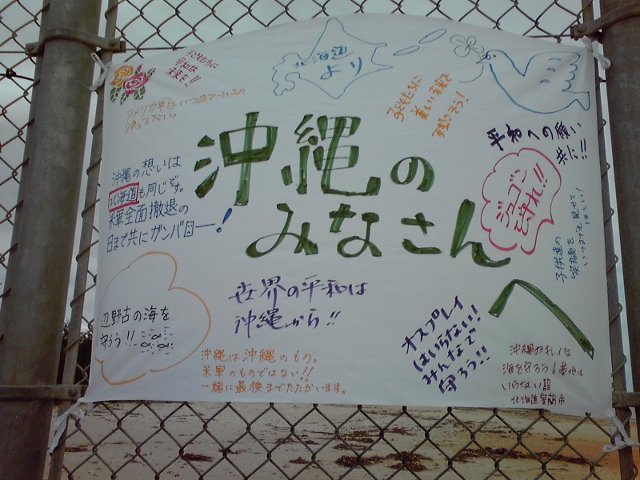 子どもたちに
平和な
未来を!!
北海道
より
子どもたちに
美しい未来を
残そう!
平和への願い
共に!!
沖縄の
みなさん
へ
沖縄の想いは
北海道も同じです。
米軍全面撤退の
日まで共にガンバロー!
ジュゴン
を守れ!!
子供達の
笑顔を
いつまでも見せて
ほしい!
辺野古の海を
守ろう!!
世界の平和は
沖縄から!!
オスプレイ
はいらない!!
みんなで
守ろう!!
沖縄は沖縄のもの。
米軍のものではない!!
一緒に最後までたたかいます。
沖縄のキレイな
海を守ろう!基地は
いらない
北海道登別市